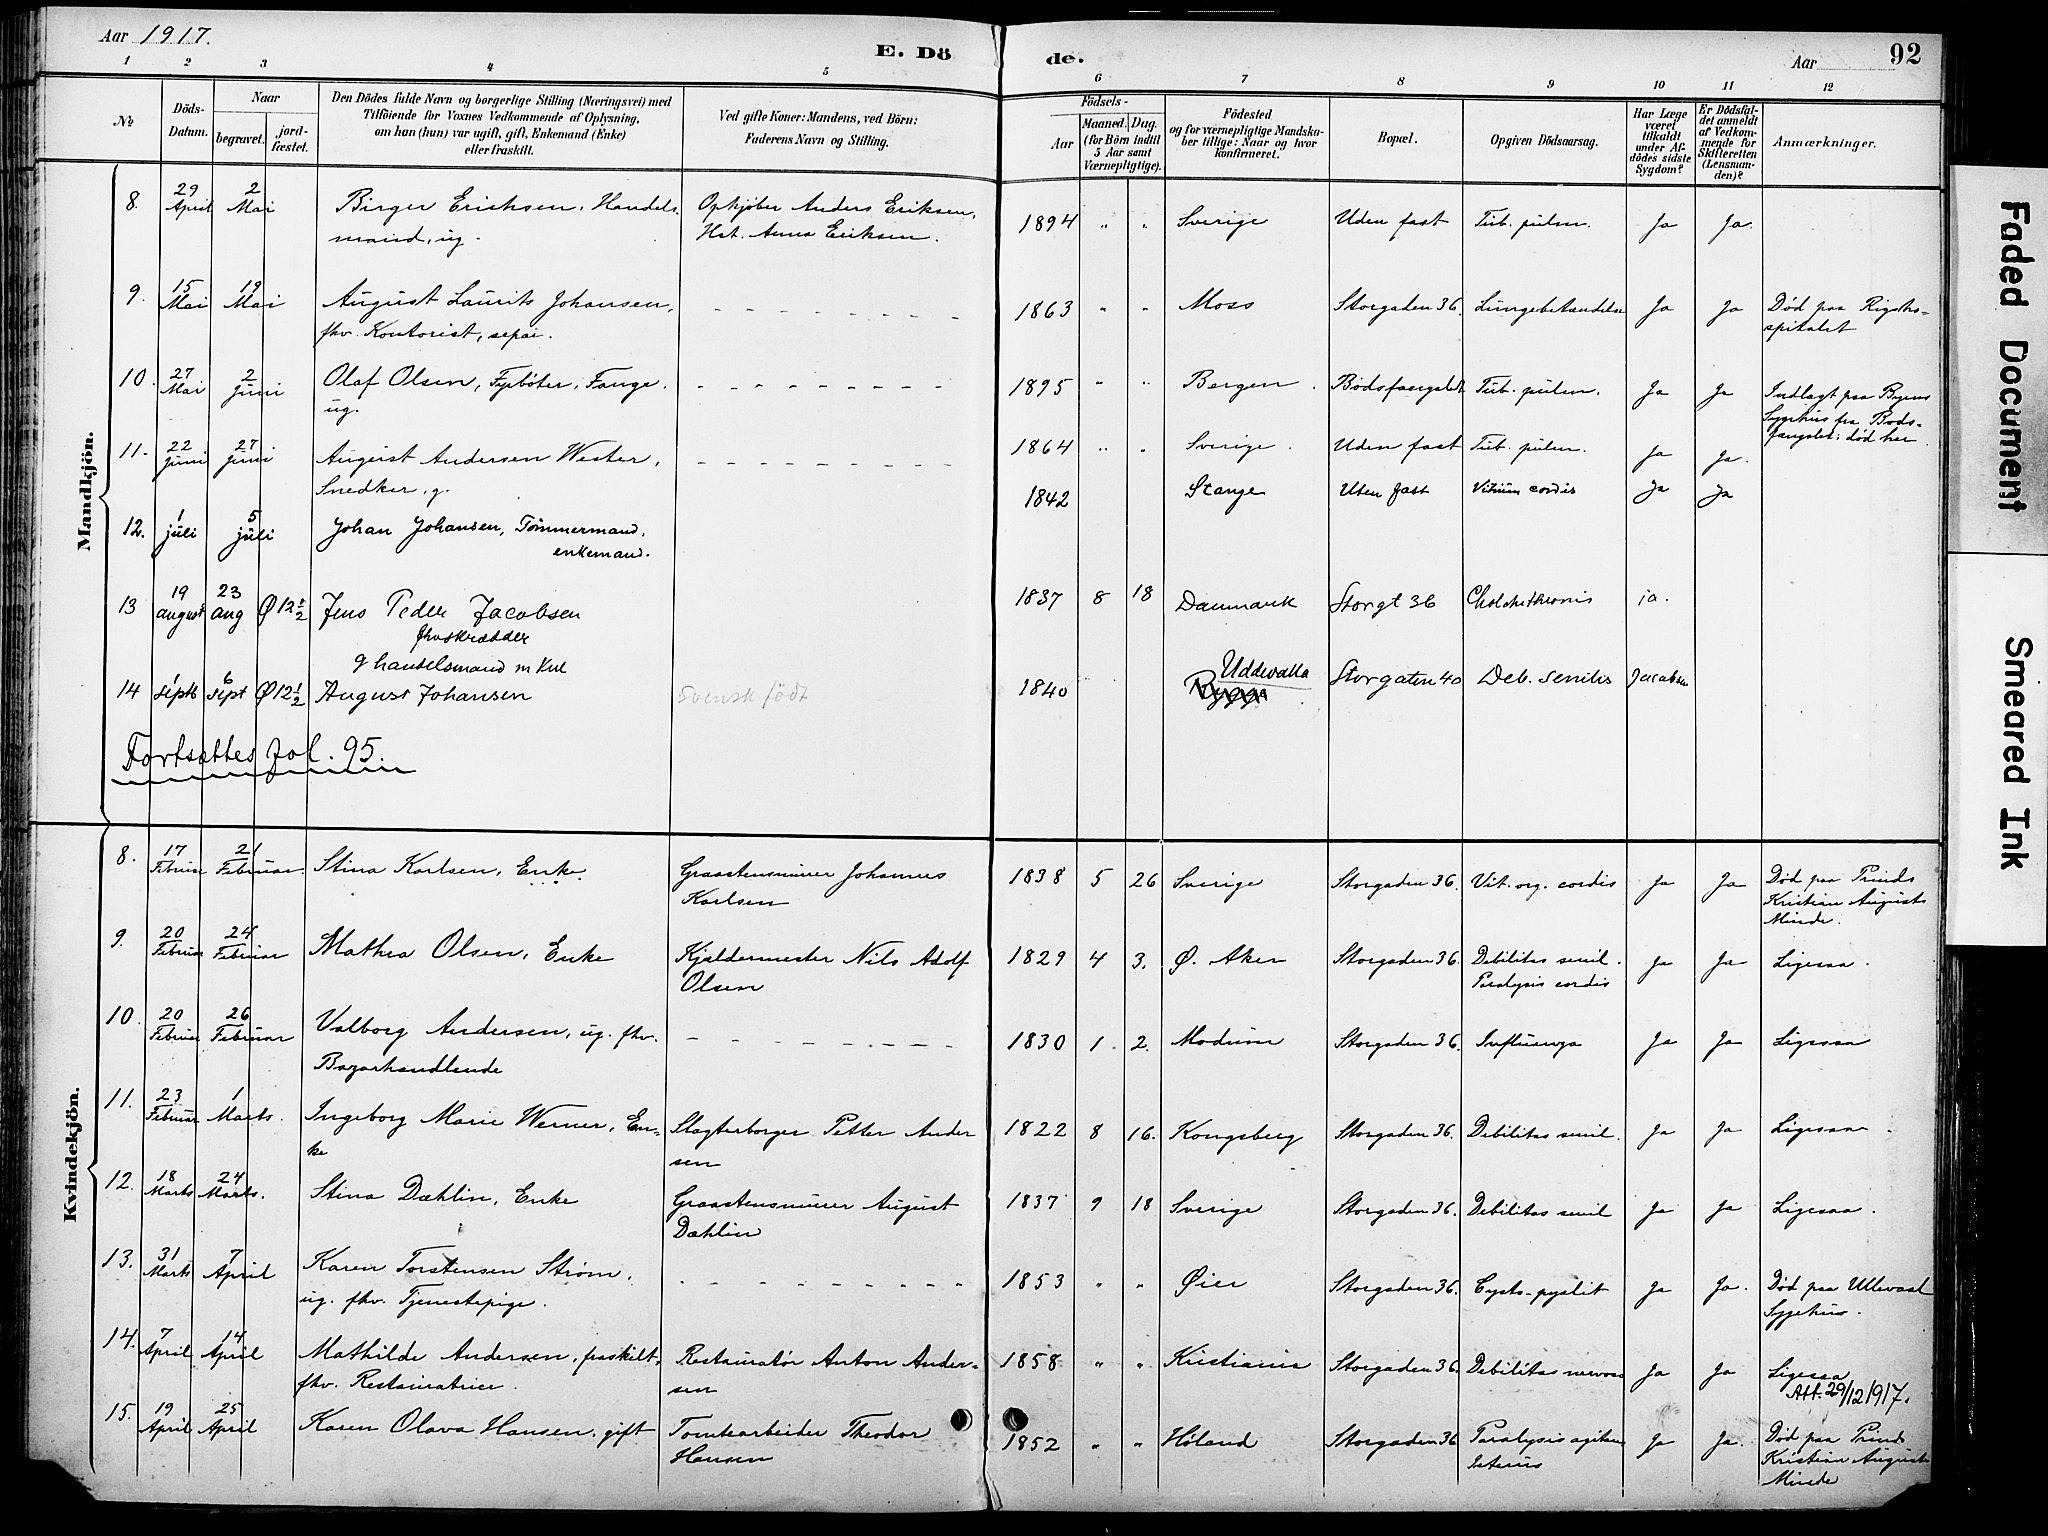 Aar 1917.
E. Dö
de.
Aar
92
1 2 3 4 5 6 7 8 9 10 11 12
№
Döds-
Datum.
Naar
begravet.
jord-
fæstet.
Den Dödes fulde Navn og borgerlige Stilling (Næringsvei) med
Tilföiende for Voxnes Vedkommende af Oplysning,
om han (hun) var ugift, gift, Enkemand (Enke)
eller fraskilt.
Ved gifte Koner: Mandens, ved Börn:
Faderens Navn og Stilling.
Födsels-
Aar
Maaned.
Dag.
(for Börn indtil
5 Aar samt
Værnepligtige).
Födested
og for værnepligtige Mandska-
ber tillige: Naar og hvor
konfirmeret.
Bopæl.
Opgiven Dödsaarsag.
Har Læge
været
tilkaldt
under Af-
dödes sidste
Sygdom?
Er Dödsfal-
det anmeldt
af Vedkom-
mende for
Skifteretten
(Lensman-
den)?
Anmærkninger.
Mandkjön.
8. 29 April 2 Mai Birger Eriksen, Handels- Opkjøber Anders Eriksen, 1894 " " Sverige Uden fast Tub. pulm. Ja Ja.
mand, ug. Hst. Anna Eriksen.
9. 15 Mai 19 Mai August Laurits Johansen, 1863 " " Moss Storgaden 36. Lungebetændelse Ja Ja Død paa Rigsho-
fhv. Kontorist, sepai. spitalet
10. 27 Mai 2 Juni Olaf Olsen, Fyrbøter, Fange. 1895 " " Bergen. Bodsfængslet Tub. pulm. Ja Ja Indlagt paa Byens
ug. Sygehus fra Bods-
fængslet; død her.
11. 22 Juni 27 Juni August Andersen Wester, 1864 " " Sverige. Uden fast Tub. pulm. Ja Ja.
Snedker, g.
12. 1 juli 5 juli Johan Johansen, Tömmermand, 1842 Stange Uten fast Vitium cordis Ja Ja
enkemand.
13 19 august 23 aug Ø 12½ Jens Peder Jacobsen 1837 8 18 Danmark Storgt 36 ja.
fhv skrædder
g handelsmand m Kul
14 1 septb 6 sept Ø 12½ August Johansen svensk födt 1840 Uddevalla Storgaten 40 Deb. senilis Jacobsen
Fortsættes fol. 95.
Kvindekjön.
8. 17 Februar 21 Februar Stina Karlsen, Enke Graastensmurer Johannes 1838 5 26 Sverige Storgaden 36. Vit. org. cordis Ja Ja Død paa Prinds
Karlsen Kristian Augusts
Minde.
9. 20 Februar 24 Februar Mathea Olsen, Enke Kjældermester Nils Adolf 1829 4 3. Ø. Aker Storgaden 36. Debilitas senil. Ja Ja Ligesaa.
Olsen Paralysis cordis
10. 20 Februar 26 Februar Valborg Andersen, ug. fhv. 1830 1. 2. Modum Storgaden 36. Influenza Ja Ja Ligesaa
Bazarhandlende
11. 23 Februar 1 Marts. Ingeborg Marie Werner, En- Slagterborger Petter Ander 1822 8 16. Kongsberg Storgaden 36. Debilitas senil. Ja Ja Ligesaa.
ke sen
12. 18 Marts 24 Marts. Stina Dæhlin, Enke Graastensmurer August 1837 9 18 Sverige Storgaden 36. Debilitas senil Ja Ja Ligesaa.
Dæhlin
13. 31 Marts 7 April Karen Torstensen Strøm, 1853 " " Øier Storgaden 36. Cysto-pyelit Ja Ja. Død paa Ullevaal
ug. fhv. Tjenestepige. Sygehus.
14. 7 April 14 April Mathilde Andersen, fraskilt, Restauratør Anton Ander- 1858 " " Kristiania Storgaden 36. Debilitas nervosa Ja Ja Ligesaa
fhv. Restauratrice. sen Att. 29/12 1917.
15. 19 April 25 April Karen Olava Hansen, gift Tomtearbeider Theodor 1852 " " Høland Storgaden 36 Paralysis agitans Ja Ja. Død paa Prinds
Hansen Kristian Augusts
Minde
Faded Document
Smeared Ink